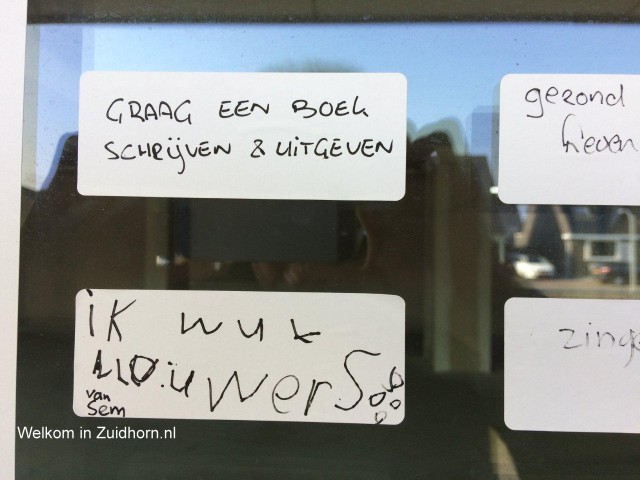 GRAAG EEN BOEK
SCHRIJVEN & UITGEVEN
gezond
ik wul
van
Sem
zinge
Welkom in Zuidhorn.nl